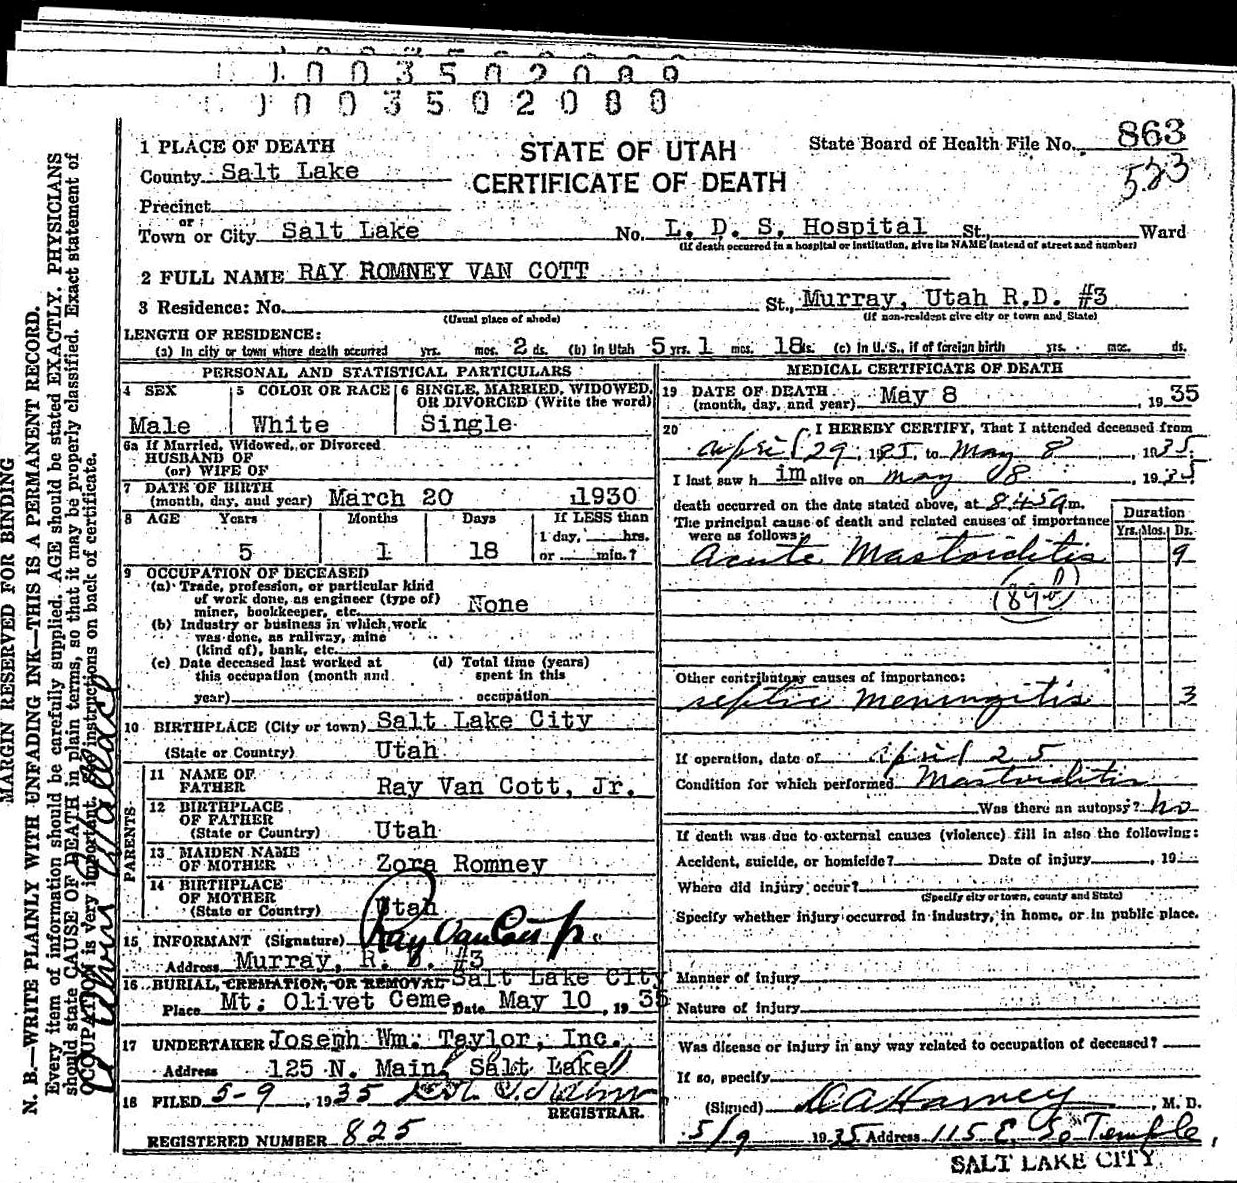 1003502089
1003502088
MARGIN RESERVED FOR BINDING
N. B.—WRITE PLAINLY WITH UNFADING INK—THIS IS A PERMANENT RECORD.
Every item of information should be carefully supplied. AGE should be stated EXACTLY. PHYSICIANS
should state CAUSE OF DEATH in plain terms, so that it may be properly classified. Exact statement of
OCCUPATION is very important. See instructions on back of certificate.
STATE OF UTAH
CERTIFICATE OF DEATH
State Board of Health File No. 863
523
1 PLACE OF DEATH
County Salt Lake
Precinct
or
Town or City Salt Lake No. L. D. S. Hospital St., Ward
(If death occurred in a hospital or institution, give its NAME instead of street and number)
2 FULL NAME RAY ROMNEY VAN COTT
3 Residence: No. St., Murray, Utah R.D. #3
(Usual place of abode) (If non-resident give city or town and State)
LENGTH OF RESIDENCE:
(a) In city or town where death occurred yrs. mos. 2 ds. (b) in Utah 5 yrs. 1 mos. 18 ds. (c) in U. S., if of foreign birth yrs. mos. ds.
PERSONAL AND STATISTICAL PARTICULARS
4 SEX Male
5 COLOR OR RACE White
6 SINGLE, MARRIED, WIDOWED, OR DIVORCED (Write the word) Single
6a If Married, Widowed, or Divorced
HUSBAND OF
(or) WIFE OF
7 DATE OF BIRTH
(month, day, and year) March 20 1930
8 AGE Years Months Days If LESS than
1 day, hrs.
5 1 18 or min.?
9 OCCUPATION OF DECEASED
(a) Trade, profession, or particular kind
of work done, as engineer (type of)
miner, bookkeeper, etc. None
(b) Industry or business in which work
was done, as railway, mine
(kind of), bank, etc.
(c) Date deceased last worked at
this occupation (month and
year)
(d) Total time (years)
spent in this
occupation
10 BIRTHPLACE (City or town) Salt Lake City
(State or Country) Utah
PARENTS
11 NAME OF
FATHER Ray Van Cott, Jr.
12 BIRTHPLACE
OF FATHER
(State or Country) Utah
13 MAIDEN NAME
OF MOTHER Zora Romney
14 BIRTHPLACE
OF MOTHER
(State or Country) Utah
15 INFORMANT (Signature) Ray Van Cott Jr.
Address Murray, R. D. #3
16 BURIAL, CREMATION, OR REMOVAL Salt Lake City
Place Mt. Olivet Ceme. Date May 10, 1935
17 UNDERTAKER Joseph Wm. Taylor, Inc.
Address 125 N. Main, Salt Lake
18 FILED 5-9, 1935
REGISTRAR.
REGISTERED NUMBER 825
MEDICAL CERTIFICATE OF DEATH
19 DATE OF DEATH
(month, day, and year) May 8, 1935
20 I HEREBY CERTIFY, That I attended deceased from
April 29, 1935, to May 8, 1935.
I last saw him alive on May 8, 1935
death occurred on the date stated above, at 8:45 am.
The principal cause of death and related causes of importance
were as follows:
Duration
Yrs. Mos. Ds.
Acute Mastoiditis 9
Other contributory causes of importance:
septic meningitis 3
If operation, date of April 25
Condition for which performed Mastoiditis
Was there an autopsy? no
If death was due to external causes (violence) fill in also the following:
Accident, suicide, or homicide? Date of injury, 19
Where did injury occur?
(Specify city or town, county and State)
Specify whether injury occurred in industry, in home, or in public place.
Manner of injury
Nature of injury
Was disease or injury in any way related to occupation of deceased?
If so, specify
(Signed) , M. D.
5/9 1935 Address 115 E. So Temple,
SALT LAKE CITY